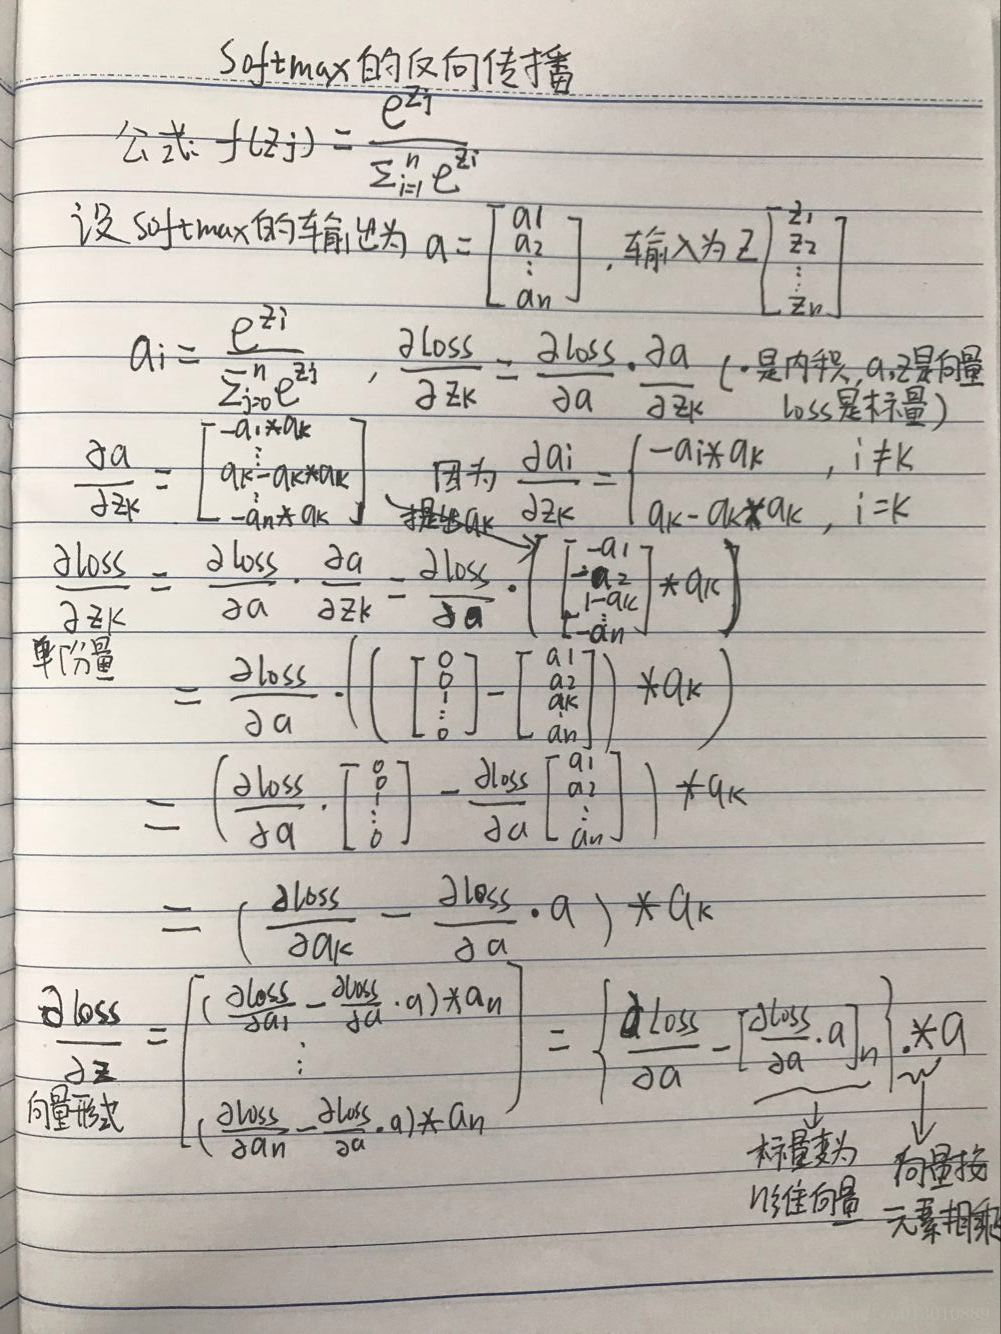 Softmax的反向传播
公式: f(zj) = e^{zj} / Σ_{i=1}^{n} e^{zi}
设softmax的输出为 a = [a1 a2 ⋮ an], 输入为 z [z1 z2 ⋮ zn]
ai = e^{zi} / Σ_{j=0}^{n} e^{zj} , ∂loss/∂zk = ∂loss/∂a · ∂a/∂zk (·是内积,a,z是向量
loss是标量)
∂a/∂zk = [-a1*ak ⋮ ak-ak*ak ⋮ -an*ak] 提出ak 因为 ∂ai/∂zk = { -ai*ak , i≠k
ak-ak*ak , i=k
∂loss/∂zk = ∂loss/∂a · ∂a/∂zk = ∂loss/∂a · ([-a1 -a2 1-ak ⋮ -an] * ak)
单个分量
= ∂loss/∂a · (([0 0 1 ⋮ 0] - [a1 a2 ak ⋮ an]) * ak)
= (∂loss/∂a · [0 0 1 ⋮ 0] - ∂loss/∂a [a1 a2 ⋮ an]) * ak
= (∂loss/∂ak - ∂loss/∂a · a) * ak
∂loss/∂z = [(∂loss/∂a1 - ∂loss/∂a · a)*an ⋮ (∂loss/∂an - ∂loss/∂a · a)*an] = {∂loss/∂a - [∂loss/∂a · a]n} .* a
向量形式
标量变为
n维向量
向量按
元素相乘